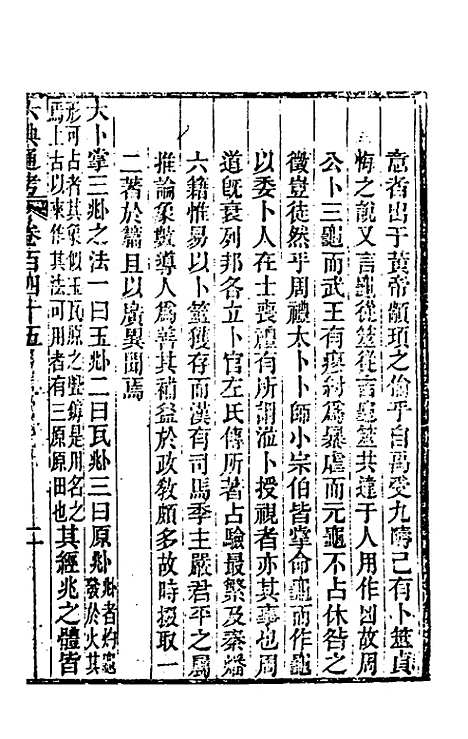 意者出于黃帝顓頊之倫乎自禹受九疇已有卜筮貞
悔之說又言龜從筮從言龜筮共違于人用作凶故周
公卜三龜而武王有瘳紂爲暴虐而元龜不占休咎之
徵豈徒然乎周禮太卜卜師小宗伯皆掌命龜而作龜
以委卜人在士喪禮有所謂涖卜授視者亦其事也周
道旣衰列邦各立卜官左氏傳所著占驗最繁及秦燔
六籍惟易以卜筮獲存而漢有司馬季主嚴君平之屬
推論象數導人爲善其補益於政敎頗多故時掇取一
二著於篇且以廣異聞焉
大卜掌三兆之法一曰玉兆二曰瓦兆三曰原兆兆者灼龜發於火其
形可占者其象似玉瓦原之璺罅是用名之焉上古以來作其法可用者有三原原田也其經兆之體皆
六典通考 卷百四十五 二